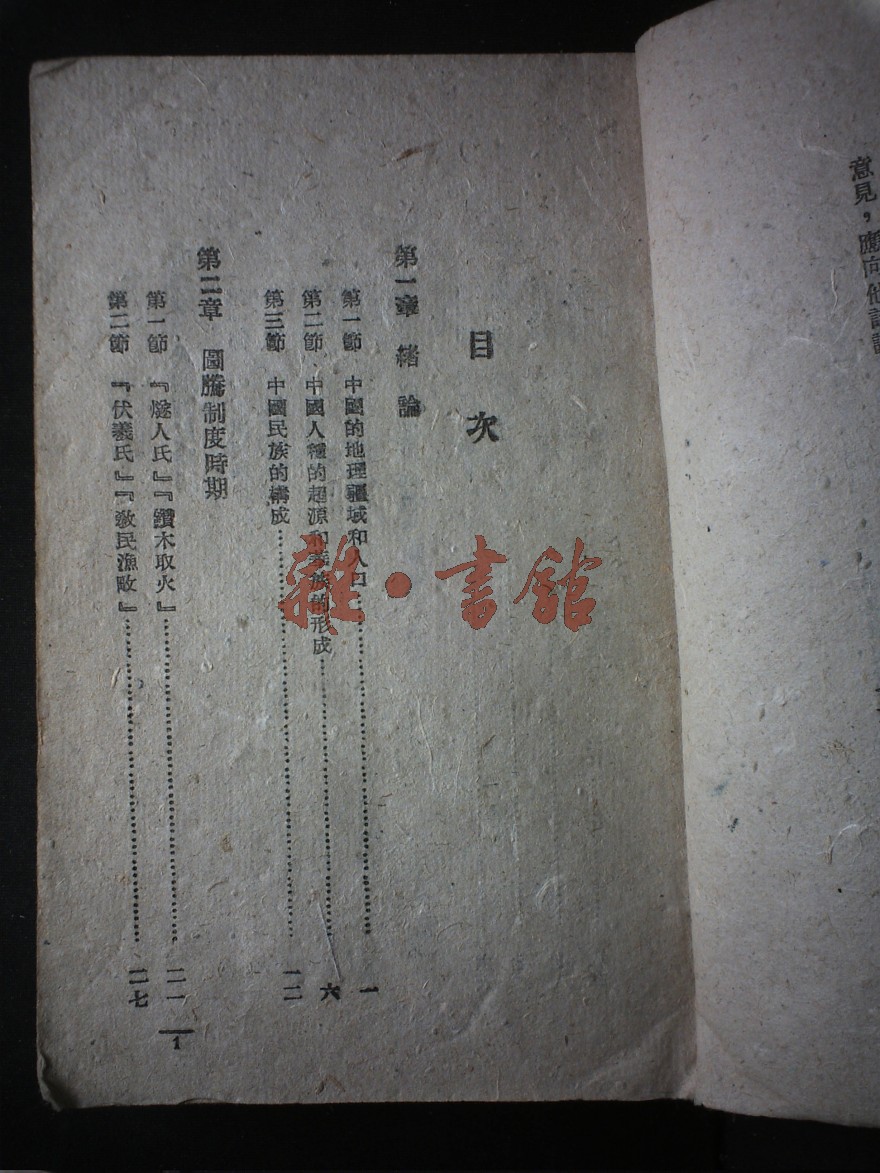 意見，應向他
目次
第一章 緒論
第一節 中國的地理疆域和人口……一
第二節 中國人種的起源和㮣族的形成……六
第三節 中國民族的構成……一二
第二章 圖騰制度時期
第一節 『燧人氏』『鑽木取火』……二一
第二節 『伏羲氏』『教民漁畋』……二七
1
雜·書館